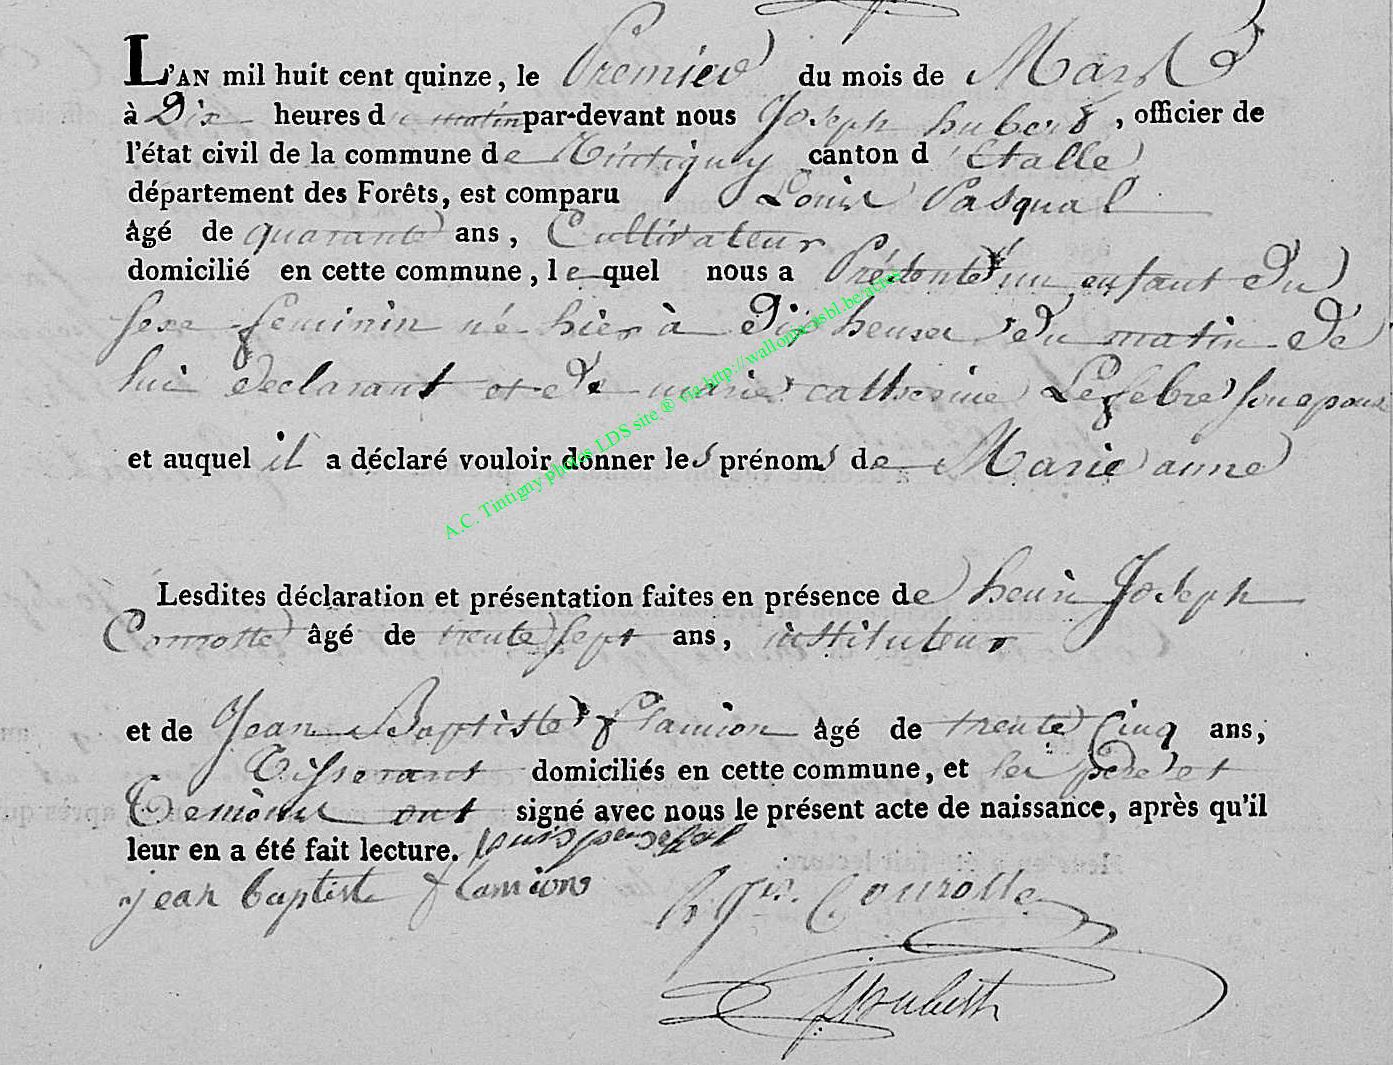 L'AN mil huit cent quinze, le Premier du mois de Mars
à Dix heures du matin par-devant nous Joseph hubert, officier de
l'état civil de la commune de Tintigny canton d'Etalle
département des Forêts, est comparu Louis Pasqual
âgé de quarante ans, Cultivateur
domicilié en cette commune, lequel nous a Présenté un enfant Du
sexe feminin né hier à Dix heures du matin De
lui declarant et de marie catherine Lefebre son epouse
et auquel il a déclaré vouloir donner les prénoms de Marie anne
Lesdites déclaration et présentation faites en présence de henri Joseph
Conrotte âgé de trente sept ans, instituteur
et de Jean Baptiste flamion âgé de trente Cinq ans,
Tisserant domiciliés en cette commune, et les pere et
Temoins ont signé avec nous le présent acte de naissance, après qu'il
leur en a été fait lecture. louis
jean baptiste flamion
h Jph. Conrotte
JHubert
A.C. Tintigny photos LDS site ® via http://wallonia-asbl.be/actes